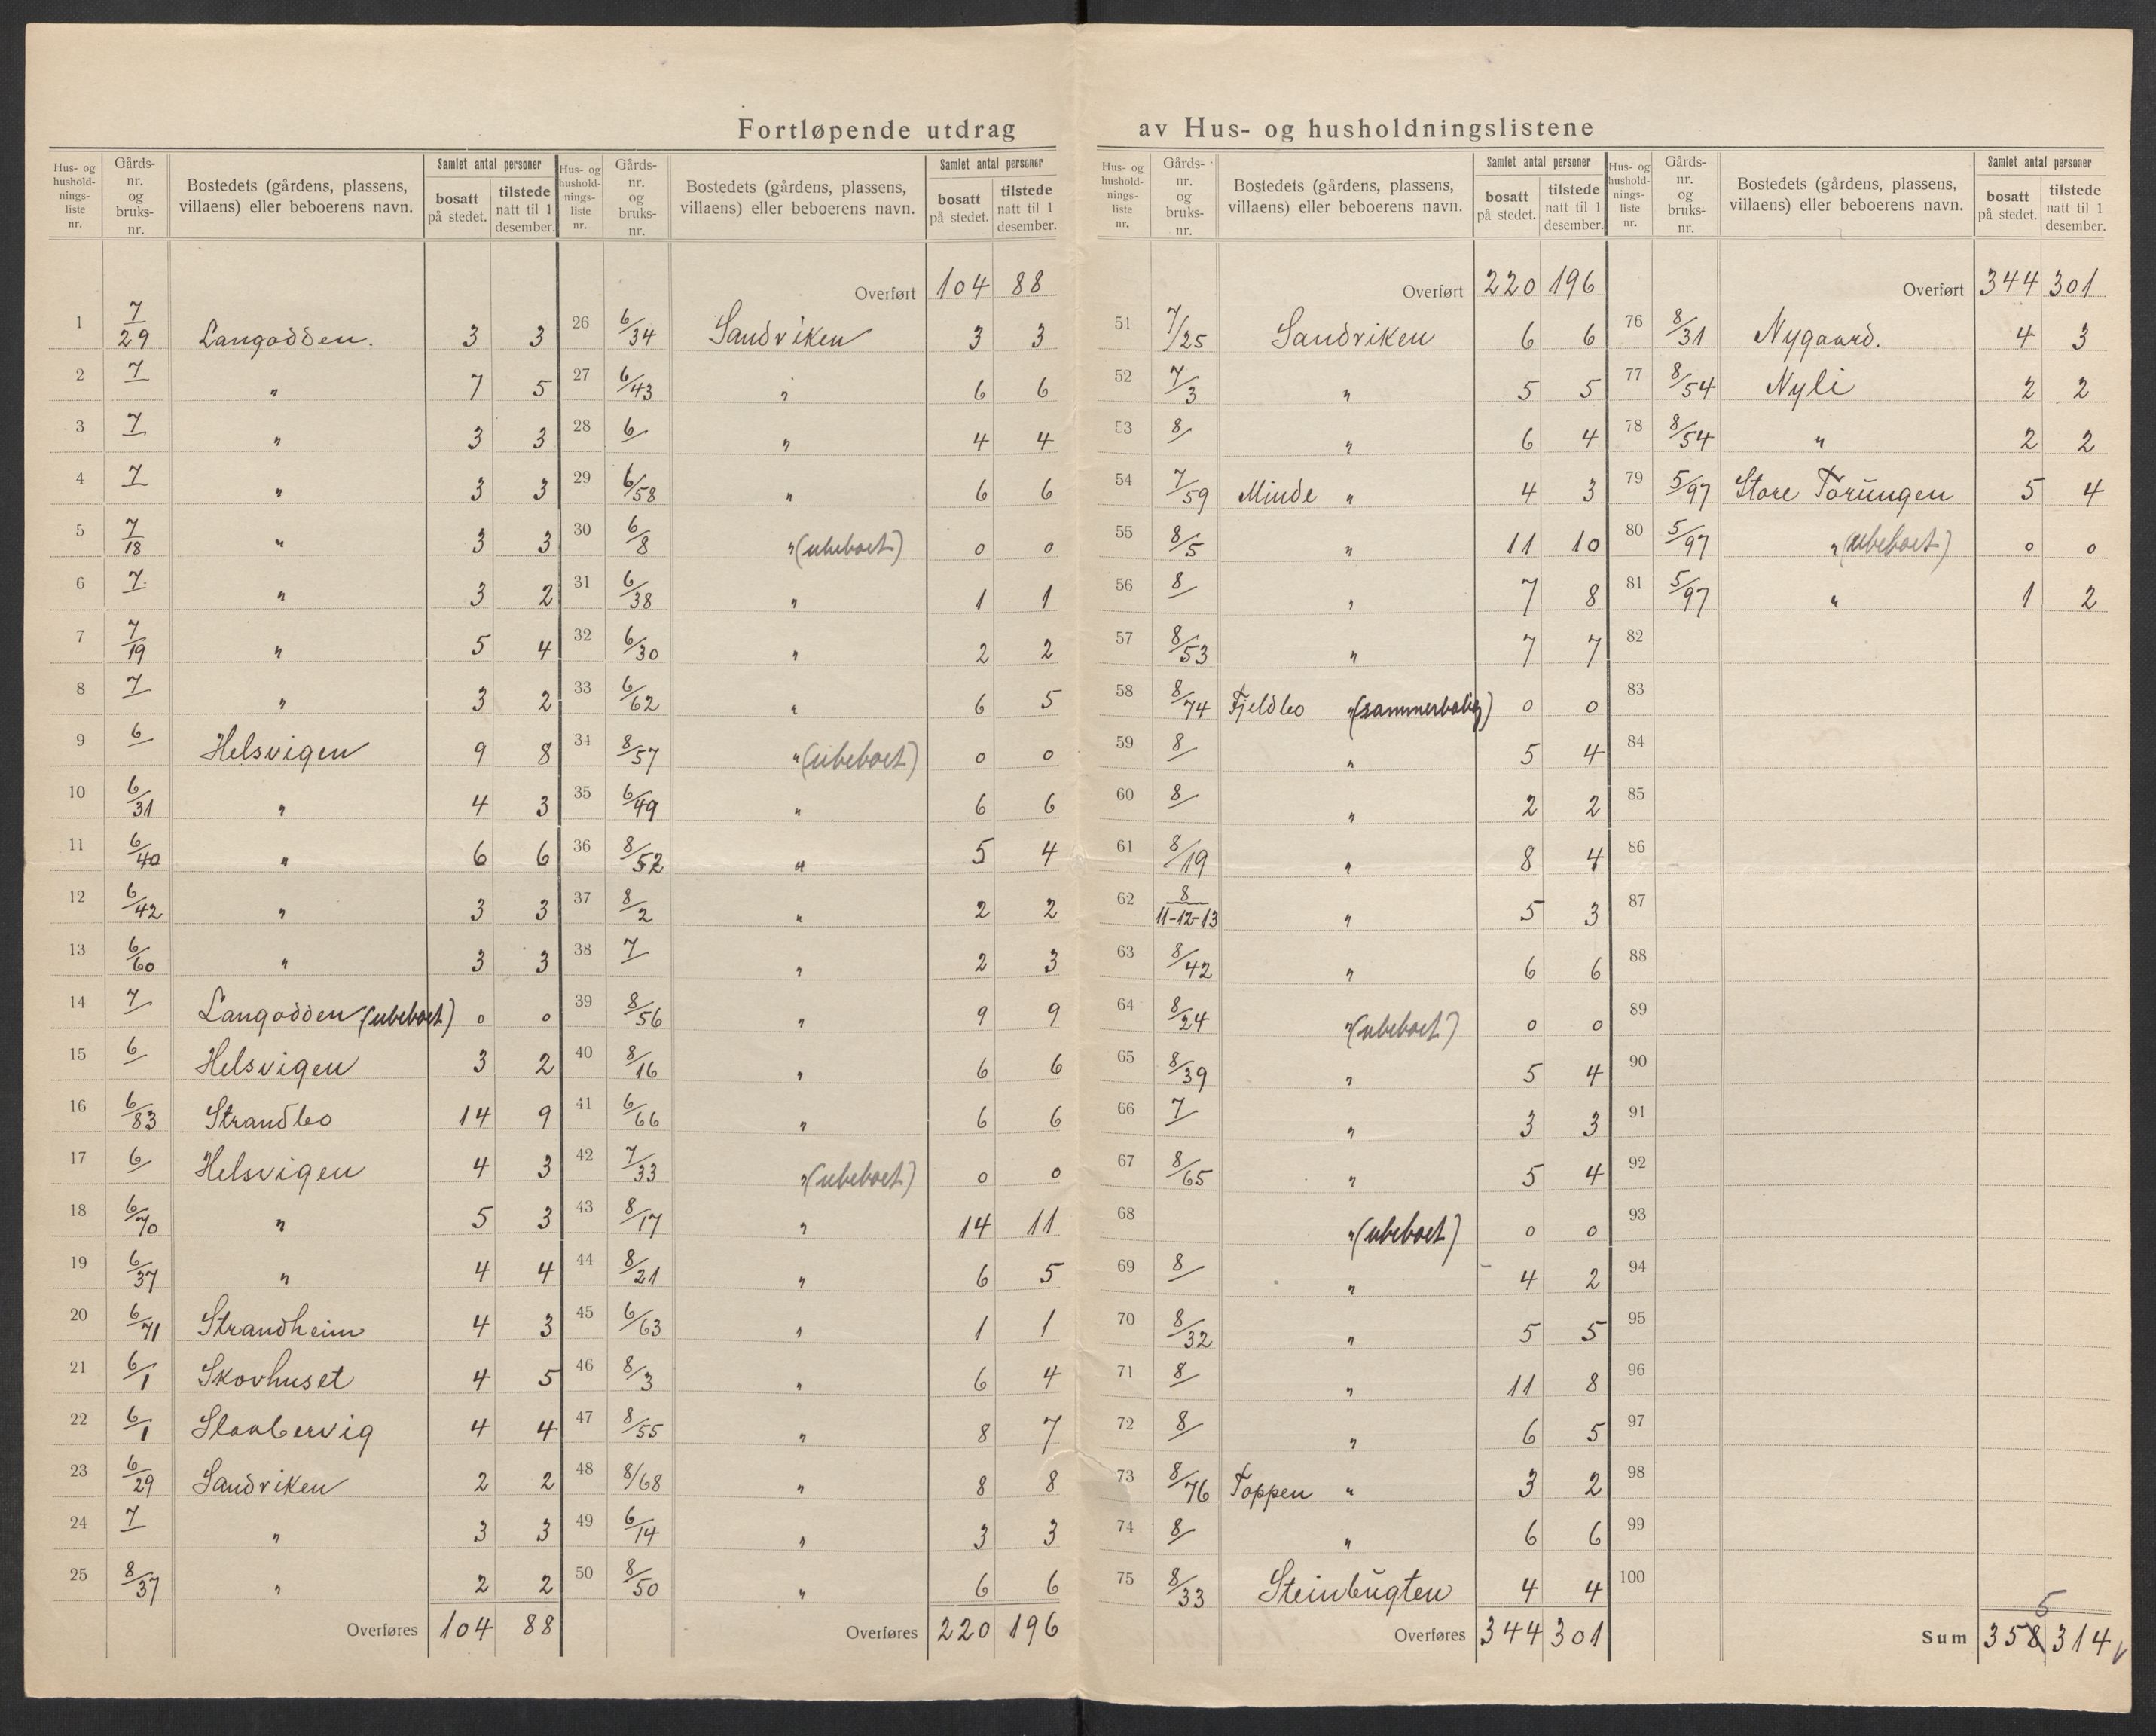 Fortløpende utdrag av Hus- og husholdningslistene
Hus- og hushold-nings-liste nr. Gårds-nr. og bruks-nr. Bostedets (gårdens, plassens, villaens) eller beboerens navn. Samlet antal personer bosatt på stedet. tilstede natt til 1 desember.
1 7/29 Langodden. 3 3
2 7 " 7 5
3 7 " 3 3
4 7 " 3 3
5 7/18 " 3 3
6 7 " 3 2
7 7/19 " 5 4
8 7 " 3 2
9 6 Helsvigen 9 8
10 6/31 " 4 3
11 6/40 " 6 6
12 6/42 " 3 3
13 6/60 " 3 3
14 7 Langodden (ubeboet) 0 0
15 6 Helsvigen 3 2
16 6/83 Strandbo 14 9
17 6 Helsvigen 4 3
18 6/70 " 5 3
19 6/37 " 4 4
20 6/71 Strandheim 4 3
21 6/1 Skovhuset 4 5
22 6/1 4 4
23 6/29 Sandviken 2 2
24 7 " 3 3
25 8/37 " 2 2
Overføres 104 88
Hus- og hushold-nings-liste nr. Gårds-nr. og bruks-nr. Bostedets (gårdens, plassens, villaens) eller beboerens navn. Samlet antal personer bosatt på stedet. tilstede natt til 1 desember.
Overført 104 88
26 6/34 Sandviken 3 3
27 6/43 " 6 6
28 6 " 4 4
29 6/58 " 6 6
30 6/8 " (ubeboet) 0 0
31 6/38 " 1 1
32 6/30 " 2 2
33 6/62 " 6 5
34 8/57 " (ubeboet) 0 0
35 6/49 " 6 6
36 8/52 " 5 4
37 8/2 " 2 2
38 7 " 2 3
39 8/56 " 9 9
40 8/16 " 6 6
41 6/66 " 6 6
42 7/33 " (ubeboet) 0 0
43 8/17 " 14 11
44 8/21 " 6 5
45 6/63 " 1 1
46 8/3 " 6 4
47 8/55 " 8 7
48 8/68 " 8 8
49 6/14 " 3 3
50 8/50 " 6 6
Overføres 220 196
Hus- og hushold-nings-liste nr. Gårds-nr. og bruks-nr. Bostedets (gårdens, plassens, villaens) eller beboerens navn. Samlet antal personer bosatt på stedet. tilstede natt til 1 desember.
Overført 220 196
51 7/25 Sandviken 6 6
52 7/3 " 5 5
53 8 " 6 4
54 7/59 Minde " 4 3
55 8/5 " 11 10
56 8 " 7 8
57 8/53 " 7 7
58 8/74 Fjeldbo " (sommerbolig) 0 0
59 8 " 5 4
60 8 " 2 2
61 8/19 " 8 4
62 8/11-12-13 " 5 3
63 8/42 " 6 6
64 8/24 " (ubeboet) 0 0
65 8/39 " 5 4
66 7 " 3 3
67 8/65 " 5 4
68 " (ubeboet) 0 0
69 8 " 4 2
70 8/32 " 5 5
71 8 " 11 8
72 8 " 6 5
73 8/76 Toppen " 3 2
74 8 " 6 6
75 8/33 Steinbugten 4 4
Overføres 344 301
Hus- og hushold-nings-liste nr. Gårds-nr. og bruks-nr. Bostedets (gårdens, plassens, villaens) eller beboerens navn. Samlet antal personer bosatt på stedet. tilstede natt til 1 desember.
Overført 344 301
76 8/31 Nygaard. 4 3
77 8/54 Nyli 2 2
78 8/54 " 2 2
79 5/97 Store Torungen 5 4
80 5/97 " (ubeboet) 0 0
81 5/97 " 1 2
82
83
84
85
86
87
88
89
90
91
92
93
94
95
96
97
98
99
100
5
Sum 358 314